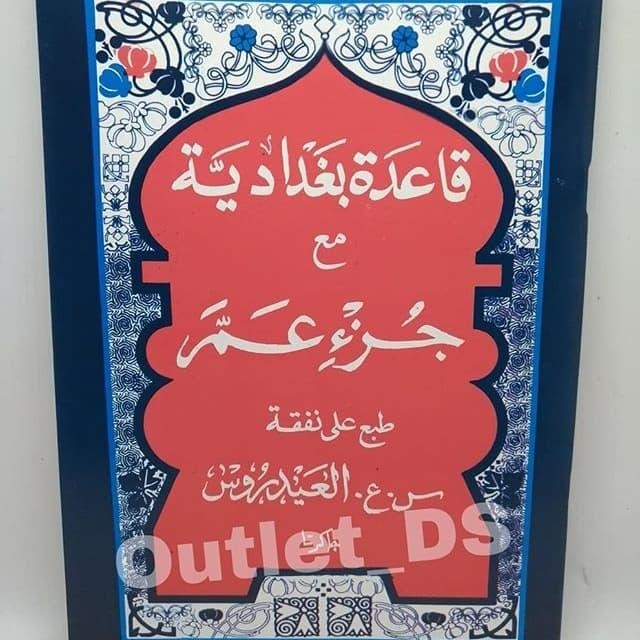 قاعدة بغدادیَّة
مع
جُزْءِ عَمَّرَ
طبع على نفقة
س.ع. العَيْدرُوس
جاكرتا
Outlet_DS